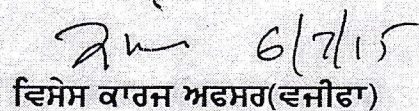 6/7/15
ਵਿਸੇਸ ਕਾਰਜ ਅਫਸਰ(ਵਜੀਫਾ)